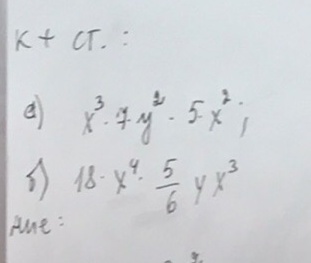 к + ст. :
а) x³ · 7 y² · 5 · x² ;
б) 18 · x⁴ · 5/6 y x³